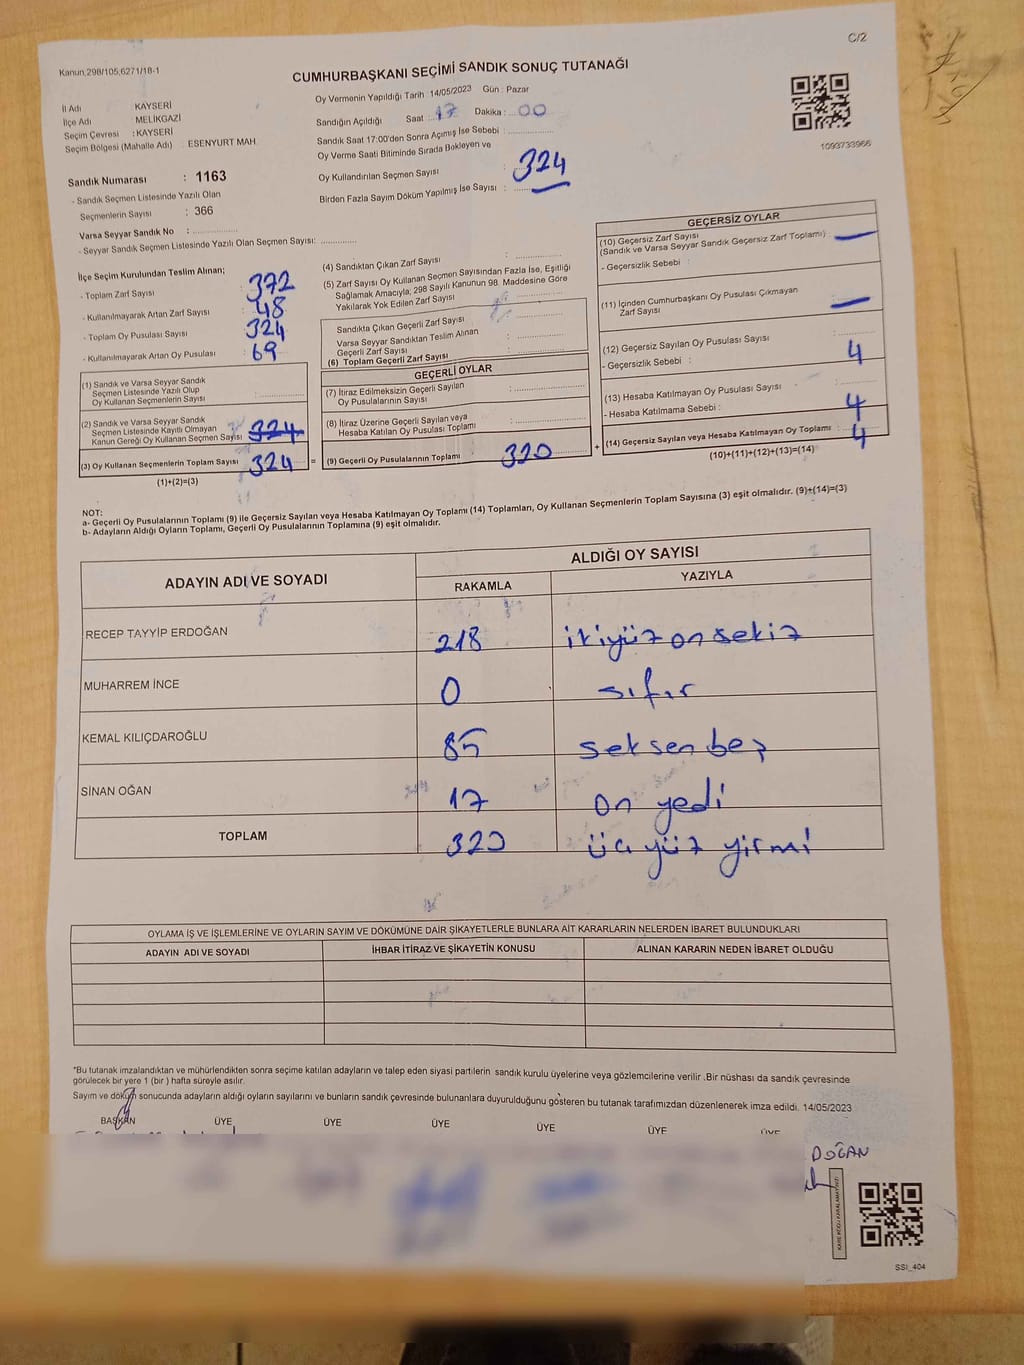 C/2
Kanun,298/105,6271/18-1
CUMHURBAŞKANI SEÇİMİ SANDIK SONUÇ TUTANAĞI
İl Adı KAYSERİ
İlçe Adı MELİKGAZİ
Seçim Çevresi : KAYSERİ
Seçim Bölgesi (Mahalle Adı) ESENYURT MAH.
Sandık Numarası : 1163
- Sandık Seçmen Listesinde Yazılı Olan
Seçmenlerin Sayısı : 366
Varsa Seyyar Sandık No :
- Seyyar Sandık Seçmen Listesinde Yazılı Olan Seçmen Sayısı:
Oy Vermenin Yapıldığı Tarih :14/05/2023 Gün : Pazar
Sandığın Açıldığı Saat : 17 Dakika : 00
Sandık Saat 17:00'den Sonra Açımış İse Sebebi :
Oy Verme Saati Bitiminde Sırada Bekleyen ve
Oy Kullandırılan Seçmen Sayısı : 324
Birden Fazla Sayım Döküm Yapılmış İse Sayısı :
1093733966
İlçe Seçim Kurulundan Teslim Alınan;
- Toplam Zarf Sayısı : 372
- Kullanılmayarak Artan Zarf Sayısı : 48
- Toplam Oy Pusulası Sayısı : 324
- Kullanılmayarak Artan Oy Pusulası : 69
(1) Sandık ve Varsa Seyyar Sandık
Seçmen Listesinde Yazılı Olup
Oy Kullanan Seçmenlerin Sayısı :
(2) Sandık ve Varsa Seyyar Sandık
Seçmen Listesinde Kayıtlı Olmayan
Kanun Gereği Oy Kullanan Seçmen Sayısı 324
(3) Oy Kullanan Seçmenlerin Toplam Sayısı 324 =
(1)+(2)=(3)
(4) Sandıktan Çıkan Zarf Sayısı :
(5) Zarf Sayısı Oy Kullanan Seçmen Sayısından Fazla İse, Eşitliği
Sağlamak Amacıyla, 298 Sayılı Kanunun 98. Maddesine Göre
Yakılarak Yok Edilen Zarf Sayısı :
Sandıkta Çıkan Geçerli Zarf Sayısı :
Varsa Seyyar Sandıktan Teslim Alınan
Geçerli Zarf Sayısı :
(6) Toplam Geçerli Zarf Sayısı :
GEÇERLİ OYLAR
(7) İtiraz Edilmeksizin Geçerli Sayılan
Oy Pusulalarının Sayısı :
(8) İtiraz Üzerine Geçerli Sayılan veya
Hesaba Katılan Oy Pusulası Toplamı :
(9) Geçerli Oy Pusulalarının Toplamı 320 +
GEÇERSİZ OYLAR
(10) Geçersiz Zarf Sayısı
(Sandık ve Varsa Seyyar Sandık Geçersiz Zarf Toplamı) :
- Geçersizlik Sebebi :
(11) İçinden Cumhurbaşkanı Oy Pusulası Çıkmayan
Zarf Sayısı :
(12) Geçersiz Sayılan Oy Pusulası Sayısı :
- Geçersizlik Sebebi : 4
(13) Hesaba Katılmayan Oy Pusulası Sayısı :
- Hesaba Katılmama Sebebi : 4
(14) Geçersiz Sayılan veya Hesaba Katılmayan Oy Toplamı : 4
(10)+(11)+(12)+(13)=(14)
NOT:
a- Geçerli Oy Pusulalarının Toplamı (9) ile Geçersiz Sayılan veya Hesaba Katılmayan Oy Toplamı (14) Toplamları, Oy Kullanan Seçmenlerin Toplam Sayısına (3) eşit olmalıdır. (9)+(14)=(3)
b- Adayların Aldığı Oyların Toplamı, Geçerli Oy Pusulalarının Toplamına (9) eşit olmalıdır.
ADAYIN ADI VE SOYADI ALDIĞI OY SAYISI
RAKAMLA YAZIYLA
RECEP TAYYİP ERDOĞAN 218 ikiyüz on sekiz
MUHARREM İNCE 0 sıfır
KEMAL KILIÇDAROĞLU 85 seksen beş
SİNAN OĞAN 17 on yedi
TOPLAM 320 üç yüz yirmi
OYLAMA İŞ VE İŞLEMLERİNE VE OYLARIN SAYIM VE DÖKÜMÜNE DAİR ŞİKAYETLERLE BUNLARA AİT KARARLARIN NELERDEN İBARET BULUNDUKLARI
ADAYIN ADI VE SOYADI İHBAR İTİRAZ VE ŞİKAYETİN KONUSU ALINAN KARARIN NEDEN İBARET OLDUĞU
*Bu tutanak imzalandıktan ve mühürlendikten sonra seçime katılan adayların ve talep eden siyasi partilerin sandık kurulu üyelerine veya gözlemcilerine verilir .Bir nüshası da sandık çevresinde
görülecek bir yere 1 (bir ) hafta süreyle asılır.
Sayım ve döküm sonucunda adayların aldığı oyların sayılarını ve bunların sandık çevresinde bulunanlara duyurulduğunu gösteren bu tutanak tarafımızdan düzenlenerek imza edildi. 14/05/2023
BAŞKAN ÜYE ÜYE ÜYE ÜYE ÜYE ÜYE
DOĞAN
SSI_404